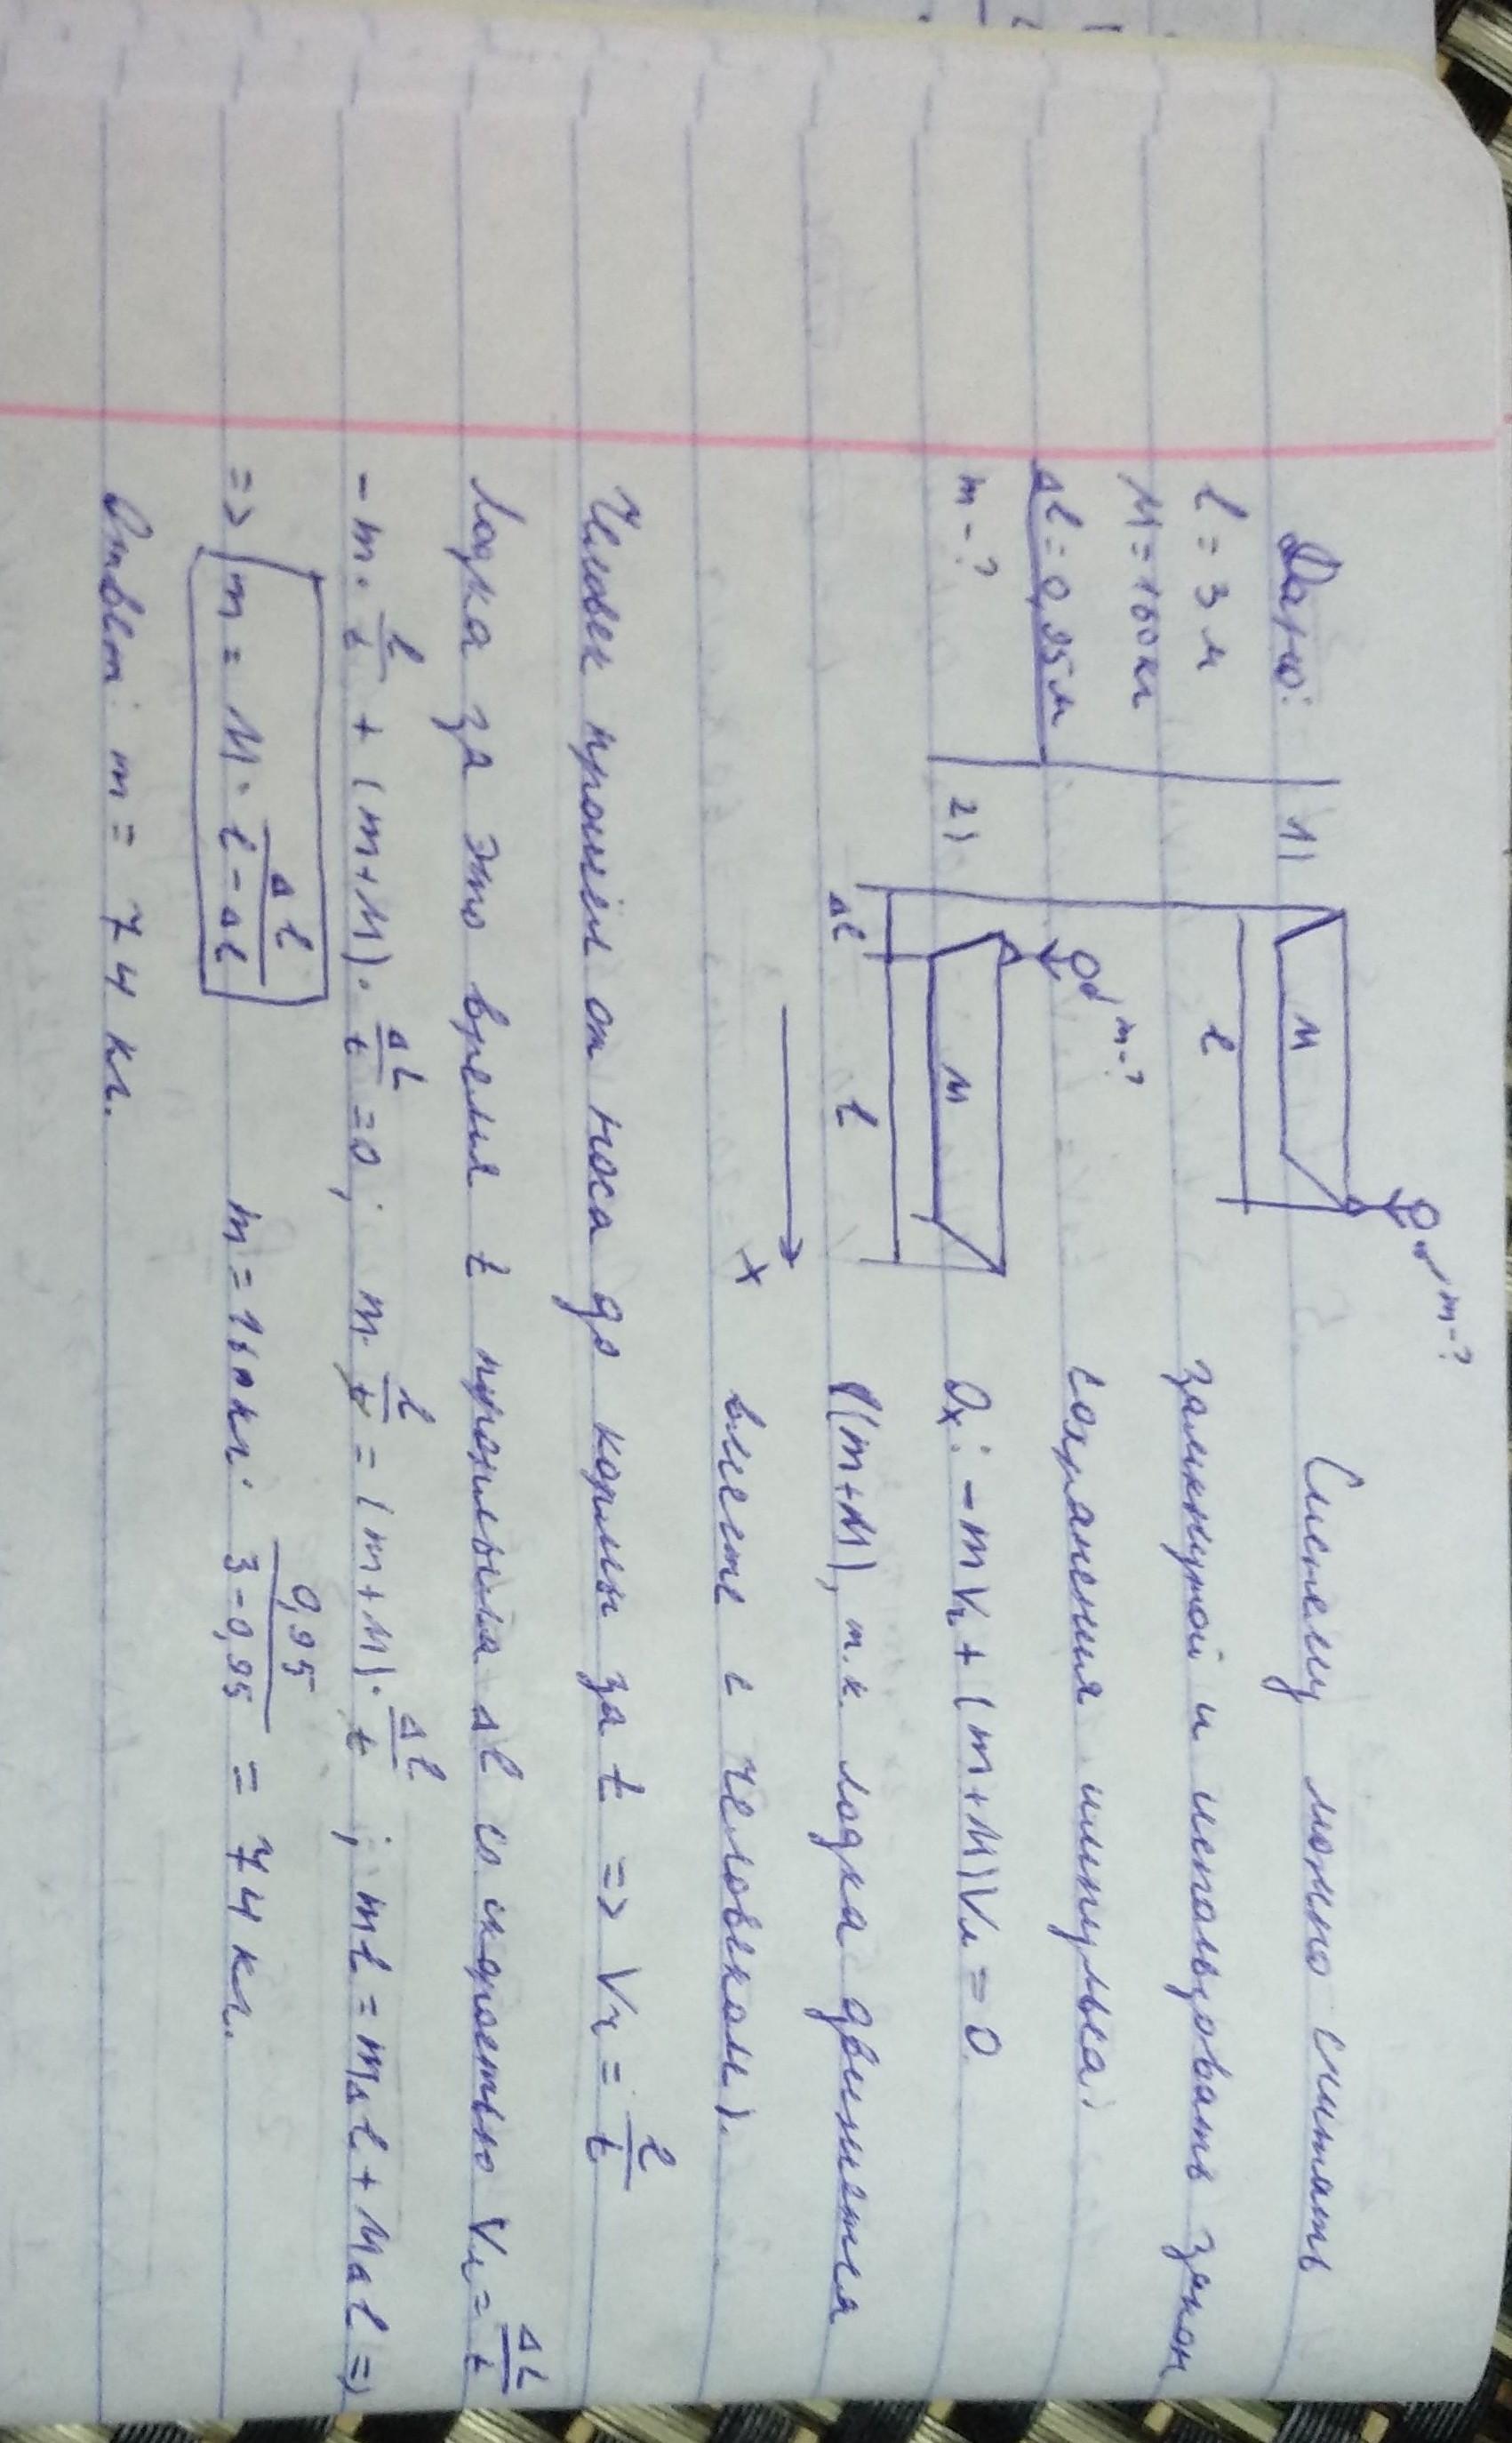 Дано:
l = 3 м
M = 160 кг
Δl = 0,95 м
m - ?
1)
m-?
M
l
2)
m-?
M
Δl
l
x
Систему можно считать
замкнутой и использовать закон
сохранения импульса:
Ox: -mVч + (m+M)Vл = 0
((m+M), т.к. лодка движется
вместе с человеком).
Человек прошёл от носа до кормы за t => Vч = l/t
Лодка за это время t проплыла Δl со скоростью Vл = Δl/t
-m · l/t + (m+M) · Δl/t = 0; m · l/t = (m+M) · Δl/t; ml = mΔl + MΔl =>
=> m = M · Δl/(l-Δl) m = 160 кг · 0,95/(3-0,95) = 74 кг.
Ответ: m = 74 кг.